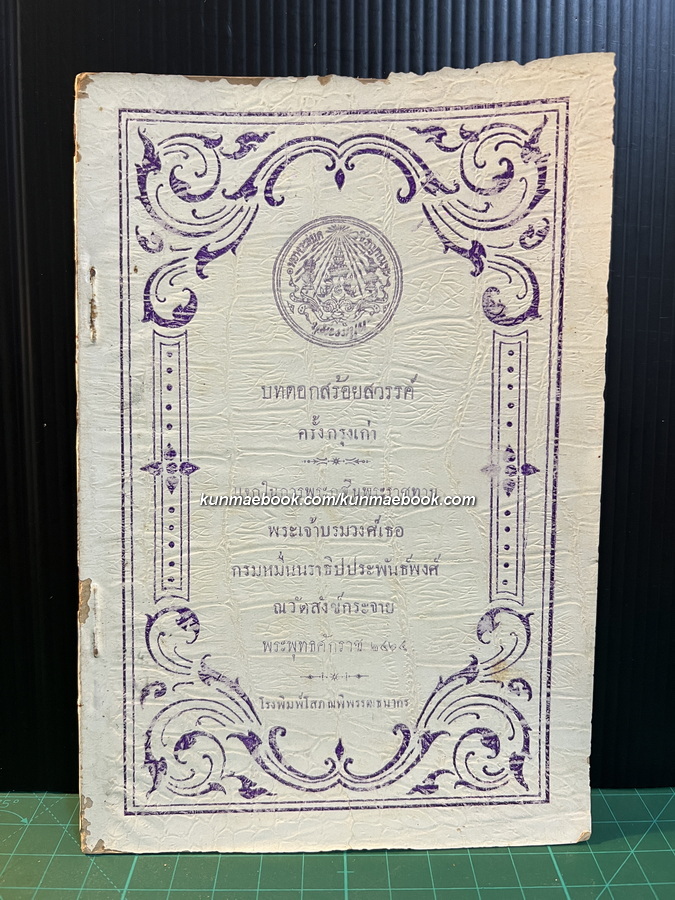 บทดอกสร้อยสวรรค์
ครั้งกรุงเก่า
แจกในการพระกฐินพระราชทาน
kunmaebook.com/kunmaebook.com
พระเจ้าบรมวงศ์เธอ
กรมหมื่นนราธิปประพันธ์พงศ์
ณวัดสังข์กระจาย
พระพุทธศักราช
โรงพิมพ์โสภณพิพรรฒธนากร